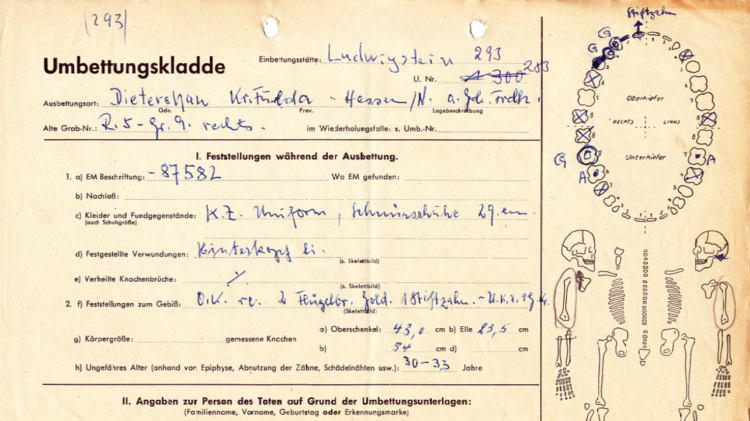 (293)
Stiftzahn
Umbettungskladde
Einbettungsstätte: Ludwigstein 293
U. Nr. 283
Ausbettungsort: Dietershan Kr. Fulda - Hessen/N. a. Gde.
Gde. Prov. Lagebeschreibung
Alte Grab-Nr.: R. 5 - Gr. 9. rechts. im Wiederholungsfalle: s. Umb.-Nr.
I. Feststellungen während der Ausbettung.
1. a) EM Beschriftung: - 87582 Wo EM gefunden:
b) Nachlaß:
c) Kleider und Fundgegenstände: K.Z. Uniform, Schnürschuhe 29. cm.
(auch Schuhgröße)
d) Festgestellte Verwundungen: Hinterkopf li.
(s. Skelettbild)
e) Verheilte Knochenbrüche:
(s. Skelettbild)
2. f) Feststellungen zum Gebiß: O.K. re. 2 Flügelbr. Gold. 1 Stiftzahn. - U.K.
(Skelettbild)
a) Oberschenkel: 43,0 cm b) Elle 23,5 cm
g) Körpergröße: gemessene Knochen
b) 34 cm d) cm
h) Ungefähres Alter (anhand von Epiphyse, Abnutzung der Zähne, Schädelnähten usw.): 30-33 Jahre
II. Angaben zur Person des Toten auf Grund der Umbettungsunterlagen:
(Familienname, Vorname, Geburtstag oder Erkennungsmarke)
G
G
Oberkiefer
RECHTS LINKS
Unterkiefer
G
A
A